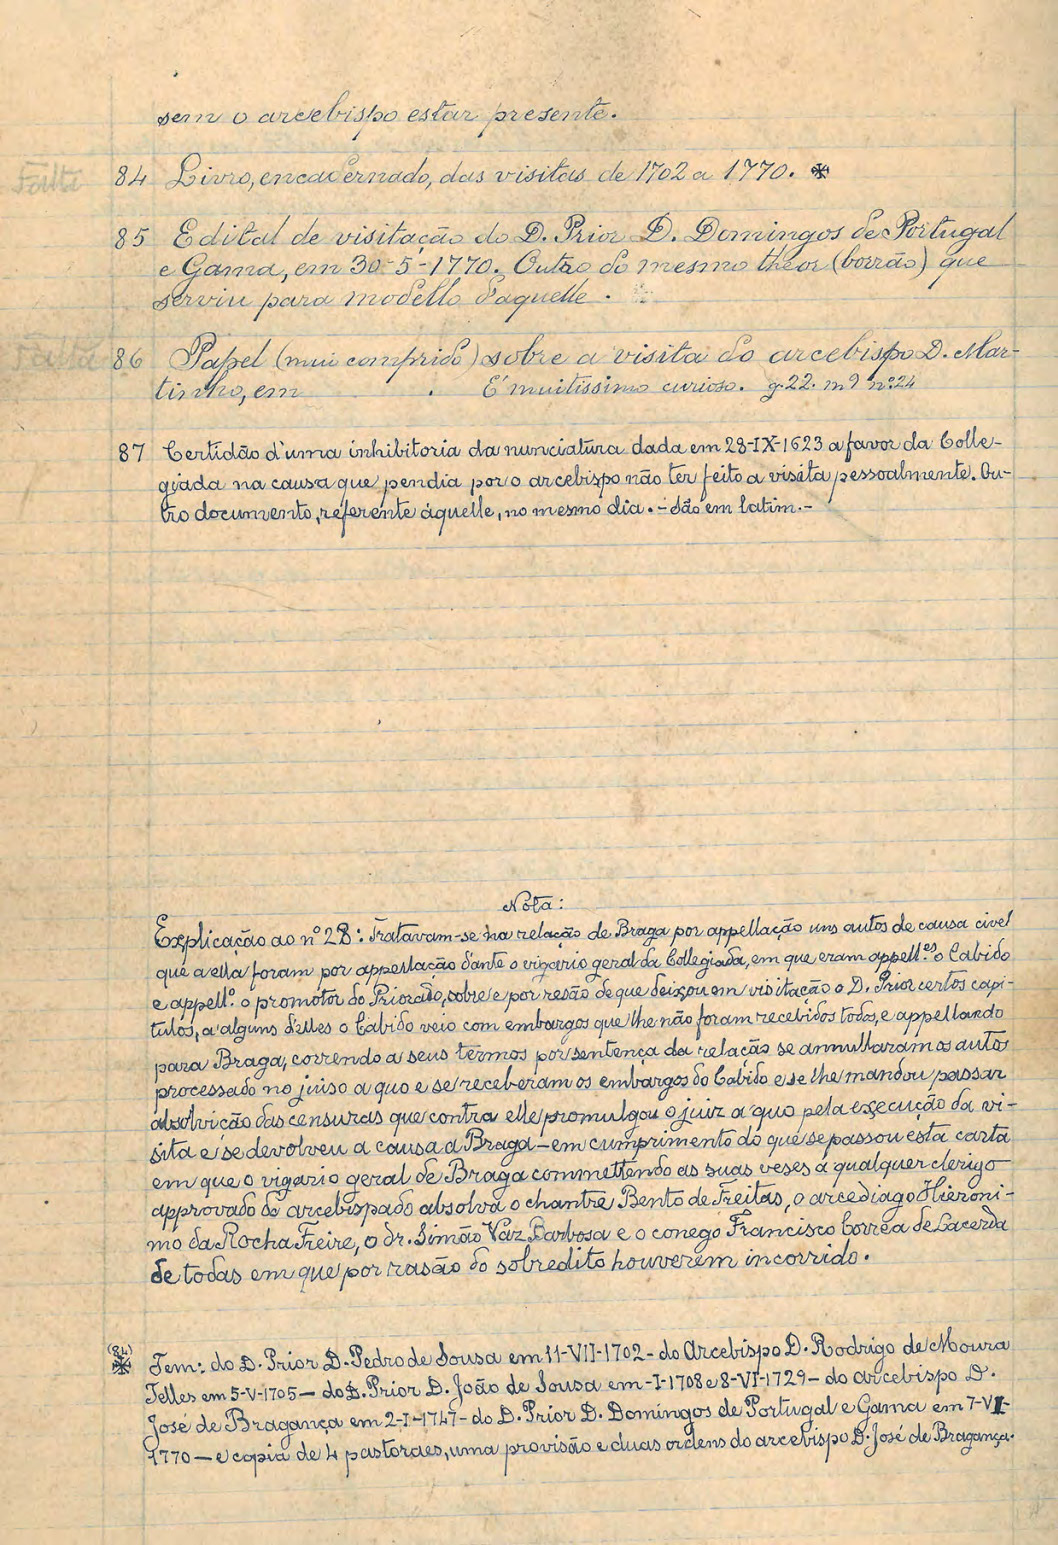 sem o arcebispo estar presente.
Falta 84 Livro, encadernado, das visitas de 1702 a 1770. *
85 Edital de visitação do D. Prior D. Domingos de Portugal
e Gama, em 30-5-1770. Outro do mesmo theor (borrão) que
serviu para modello d'aquelle.
Falta 86 Papel (mui comprido) sobre a visita do arcebispo D. Mar-
tinho, em . É muitissimo curioso. g. 22. m 9 nº 24
87 Certidão d'uma inhibitoria da nunciatura dada em 28-IX-1623 a favor da Colle-
giada na causa que pendia por o arcebispo não ter feito a visita pessoalmente. Ou-
tro documento, referente áquelle, no mesmo dia. - São em latim. -
Nota:
Explicação ao nº 28: Tratavam-se na relação de Braga por appellação uns autos de causa civel
que a ella foram por appellação d'ante o vigario geral da Collegiada, em que eram appell.es o Cabido
e appell.o o promotor do Priorado, sobre e por resão de que deixou em visitação o D. Prior certos capi-
tulos, a alguns d'elles o Cabido veio com embargos que lhe não foram recebidos todos, e appellando
para Braga, correndo a seus termos por sentença da relação se annullaram os autos
processado no juiso a quo e se receberam os embargos do Cabido e se lhe mandou passar
absolvição das censuras que contra elle promulgou o juiz a quo pela execução da vi-
sita e se devolveu a causa a Braga - em cumprimento do que se passou esta carta
em que o vigario geral de Braga commettendo as suas veses a qualquer clerigo
approvado do arcebispado absolva o chantre Bento de Freitas, o arcediago Hieroni-
mo da Rocha Freire, o dr. Simão Vaz Barbosa e o conego Francisco Corrêa de Lacerda
de todas em que por rasão do sobredito houverem incorrido.
(84) * Tem: do D. Prior D. Pedro de Sousa em 11-VII-1702 - do Arcebispo D. Rodrigo de Moura
Telles em 5-V-1705 - do D. Prior D. João de Sousa em -I-1708 e 8-VI-1729 - do arcebispo D.
José de Bragança em 2-I-1747 - do D. Prior D. Domingos de Portugal e Gama em 7-VI-
1770 - e copia de 4 pastoraes, uma provisão e duas ordens do arcebispo D. José de Bragança.